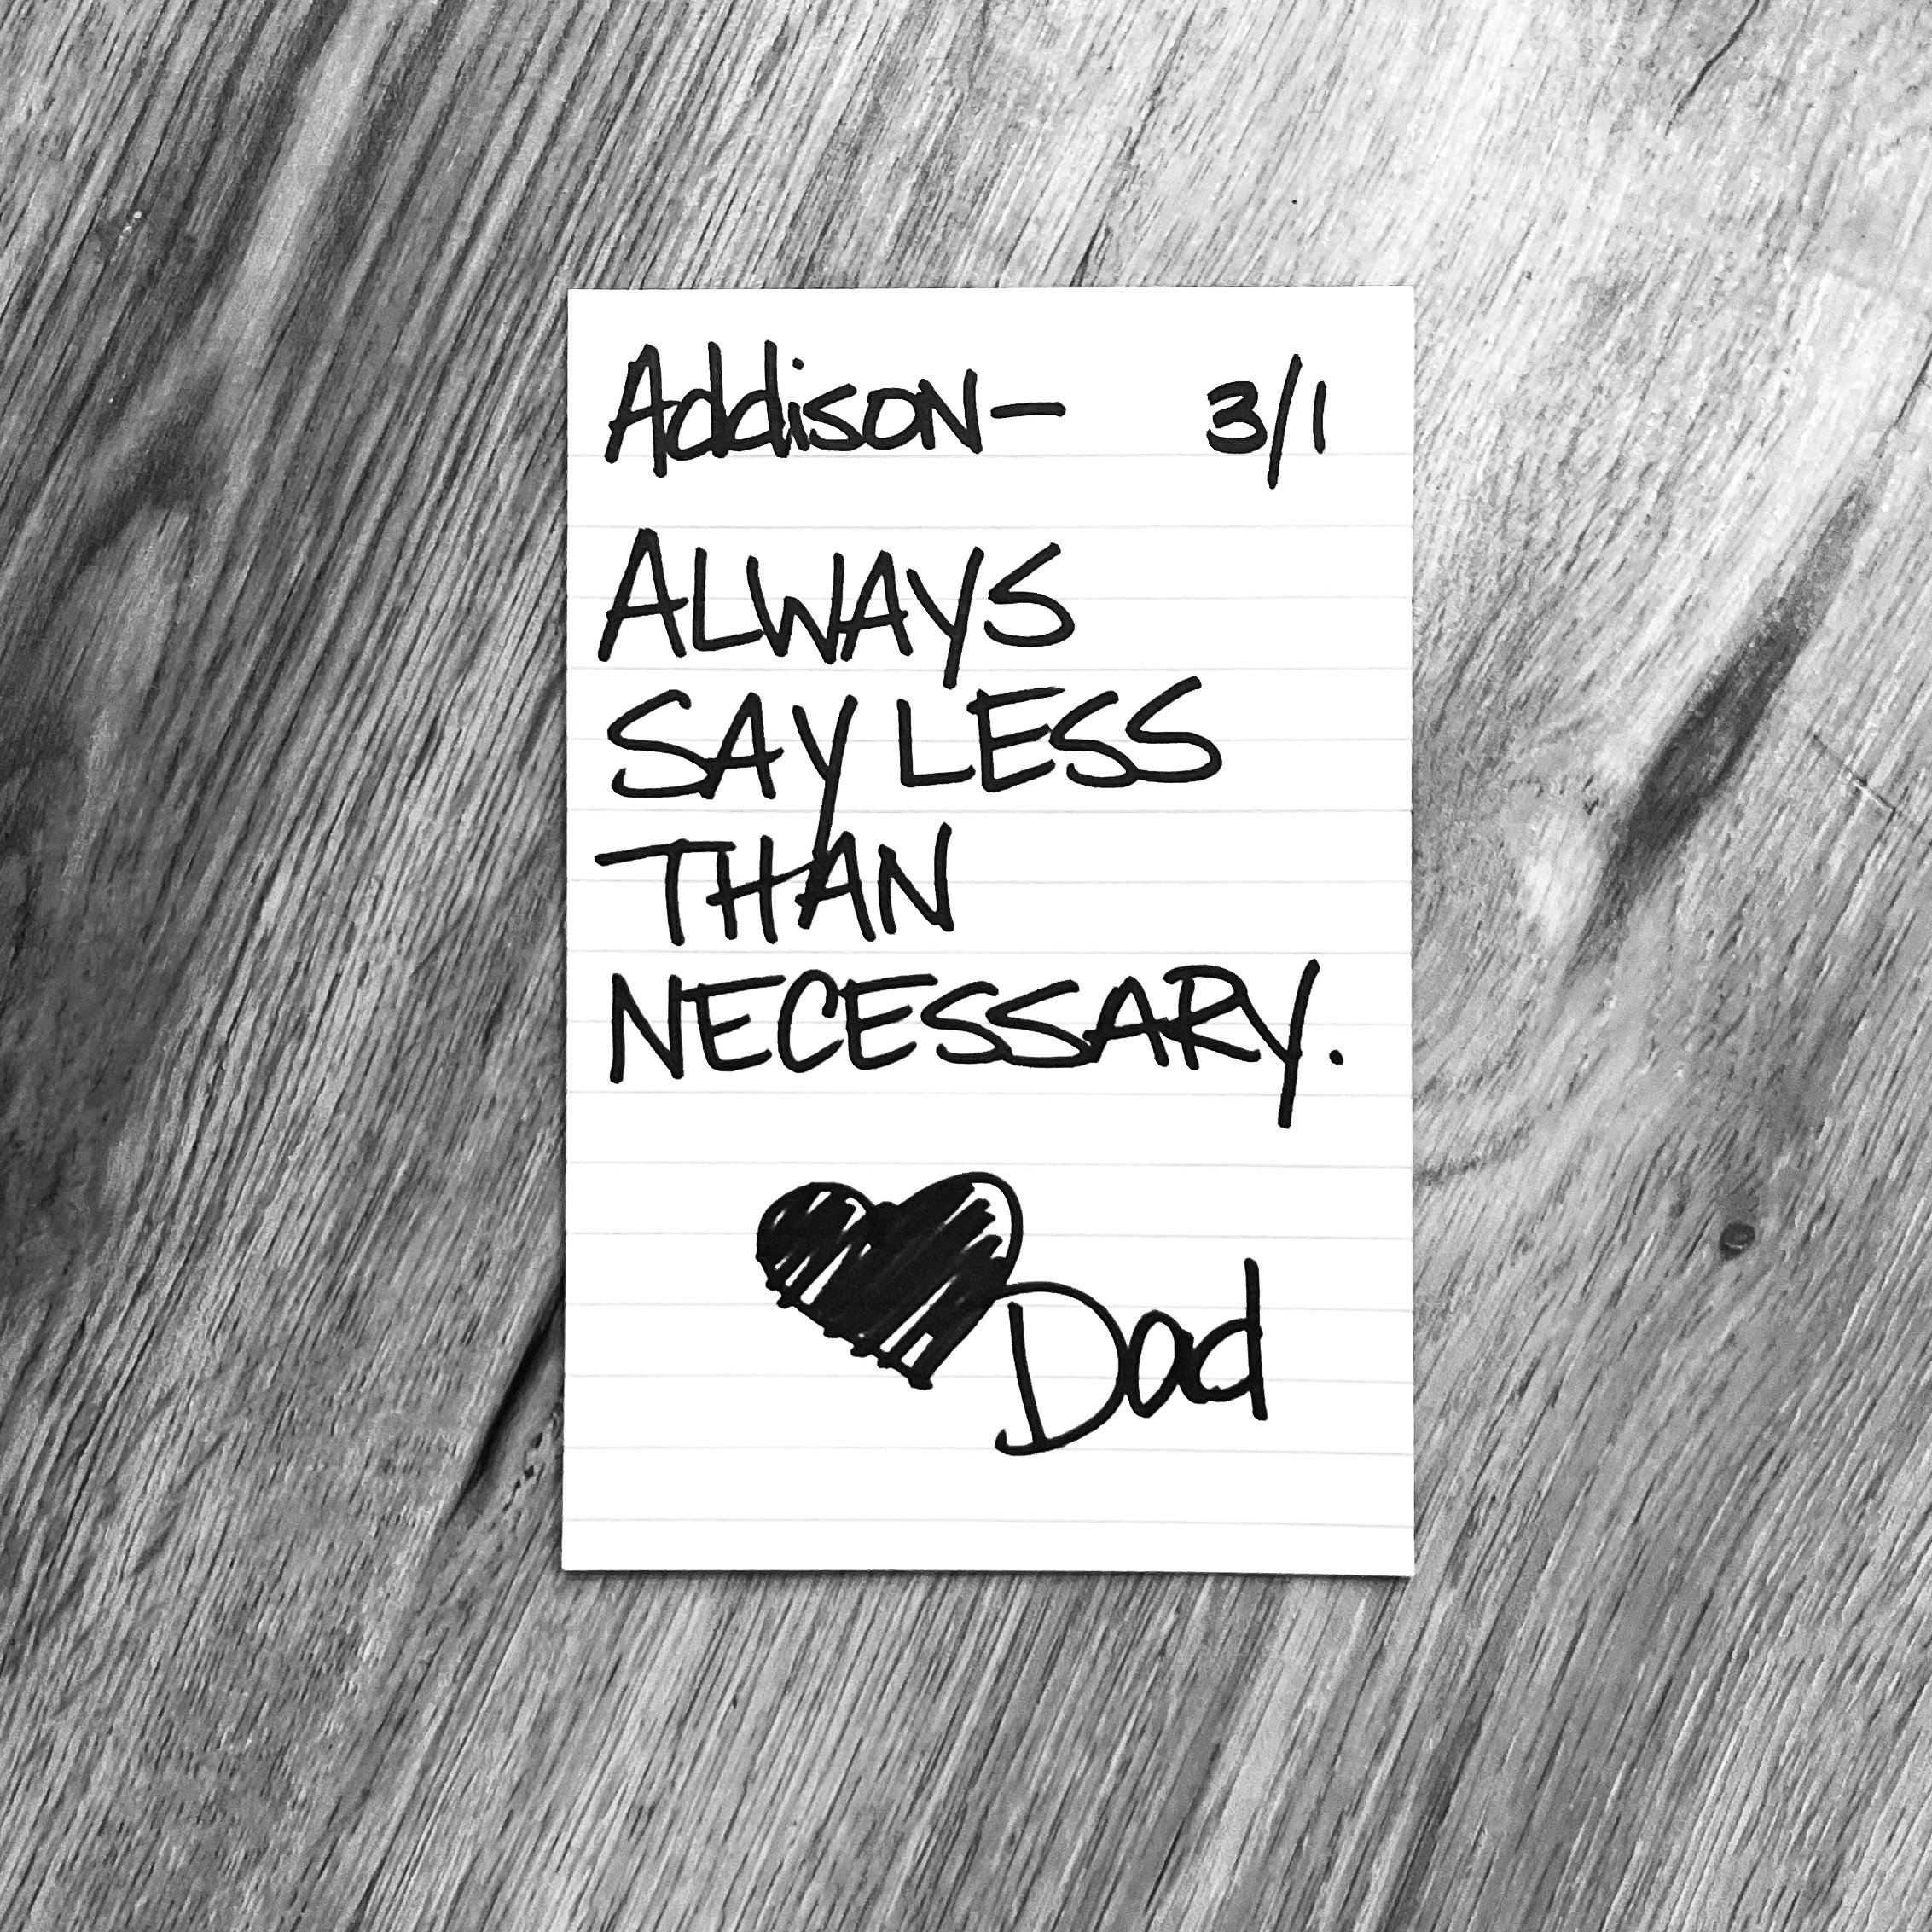 Addison— 3/1
ALWAYS
SAY LESS
THAN
NECESSARY.
Dad